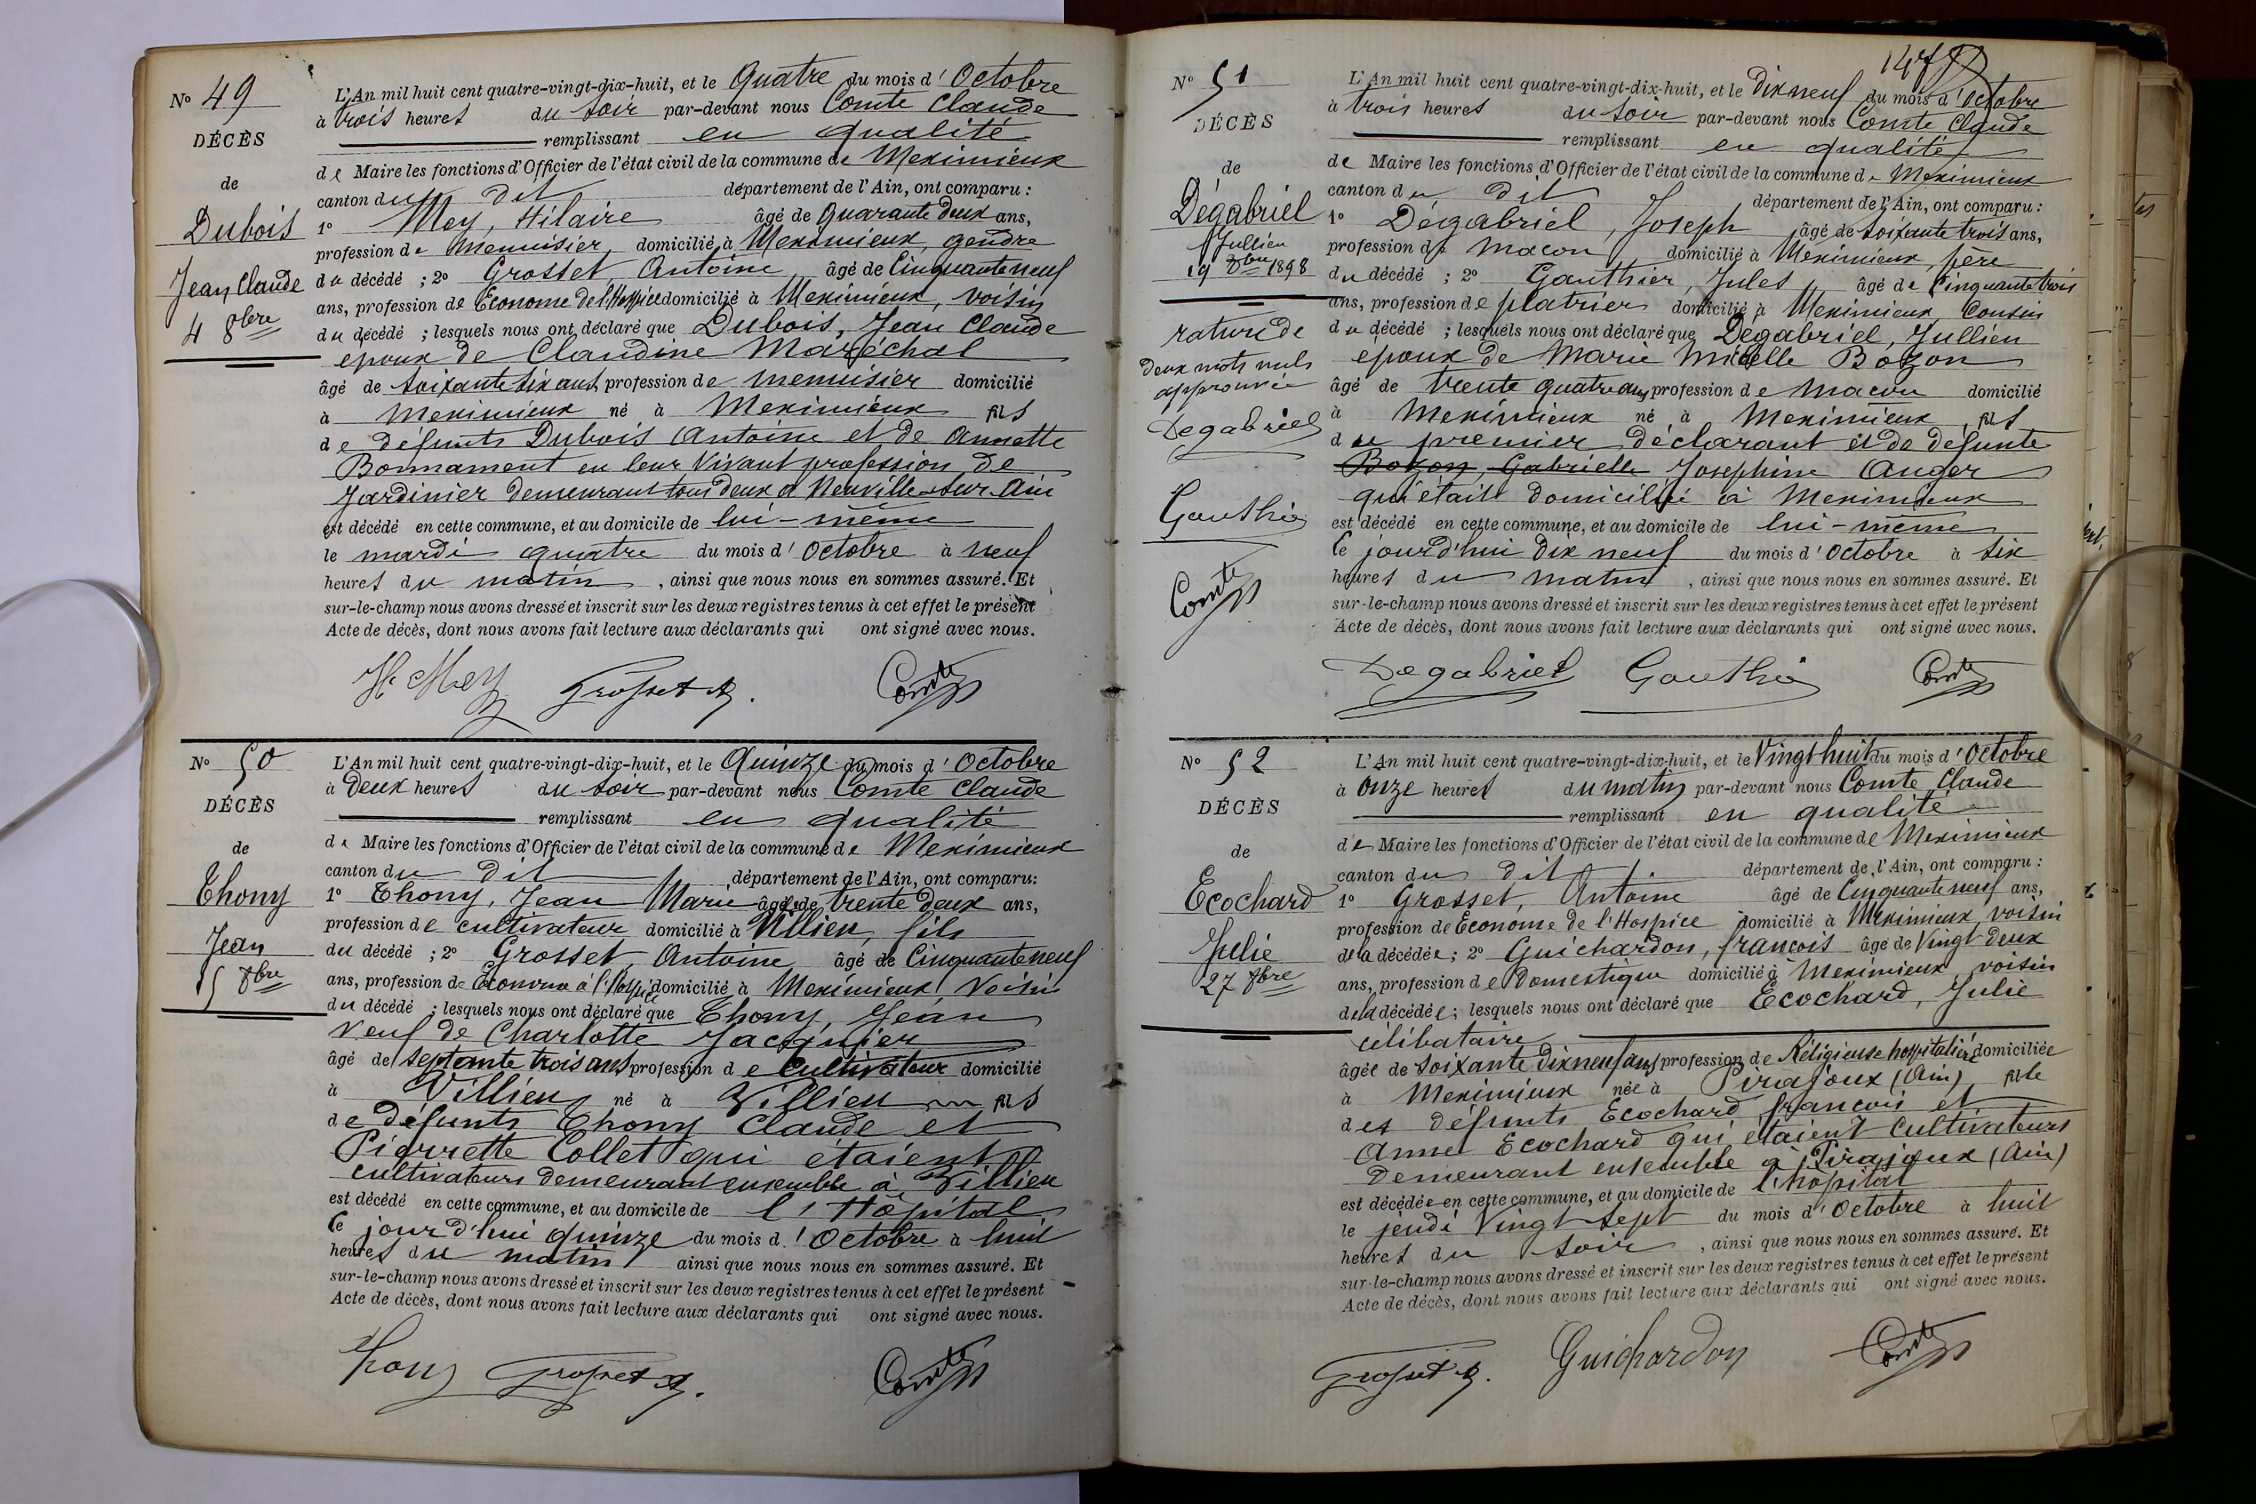 N° 49
DÉCÈS
de
Dubois
Jean Claude
4 8bre
L'An mil huit cent quatre-vingt-dix-huit, et le Quatre du mois d'Octobre
à trois heures du soir par-devant nous Comte Claude
remplissant en qualité
de Maire les fonctions d'Officier de l'état civil de la commune de Meximieux
canton du dit département de l'Ain, ont comparu :
1° Mey, Hilaire âgé de quarante deux ans,
profession de menuisier domicilié à Meximieux, gendre
du décédé ; 2° Grosset Antoine âgé de Cinquante neuf
ans, profession de Econome de l'Hospice domicilié à Meximieux, voisin
du décédé ; lesquels nous ont déclaré que Dubois, Jean Claude
epoux de Claudine Maréchal
âgé de soixante six ans profession de menuisier domicilié
à Meximieux né à Meximieux fils
de défunts Dubois Antoine et de Annette
Bonnament en leur vivant profession de
Jardinier demeurant tous deux à Neuville-sur-Ain
est décédé en cette commune, et au domicile de lui-même
le mardi quatre du mois d'Octobre à neuf
heures du matin, ainsi que nous nous en sommes assuré. Et
sur-le-champ nous avons dressé et inscrit sur les deux registres tenus à cet effet le présent
Acte de décès, dont nous avons fait lecture aux déclarants qui ont signé avec nous.
H. Mey Grosset A. Comte
N° 50
DÉCÈS
de
Thony
Jean
15 8bre
L'An mil huit cent quatre-vingt-dix-huit, et le Quinze du mois d'Octobre
à Deux heures du soir par-devant nous Comte Claude
remplissant en qualité
de Maire les fonctions d'Officier de l'état civil de la commune de Meximieux
canton du dit département de l'Ain, ont comparu:
1° Thony, Jean Marie âgé de trente deux ans,
profession de cultivateur domicilié à Villieu, fils
du décédé ; 2° Grosset Antoine âgé de Cinquante neuf
ans, profession de Econome à l'Hospice domicilié à Meximieux, Voisin
du décédé ; lesquels nous ont déclaré que Thony, Jean
Veuf de Charlotte Jacquier
âgé de septante trois ans profession de Cultivateur domicilié
à Villieu né à Villieu fils
de défunts Thony Claude et
Pierrette Collet qui étaient
cultivateurs demeurant ensemble à Villieu
est décédé en cette commune, et au domicile de l'Hôpital
le jourd'hui quinze du mois d'Octobre à huit
heures du matin ainsi que nous nous en sommes assuré. Et
sur-le-champ nous avons dressé et inscrit sur les deux registres tenus à cet effet le présent
Acte de décès, dont nous avons fait lecture aux déclarants qui ont signé avec nous.
Thony Grosset A. Comte
147
N° 51
DÉCÈS
de
Dégabriel
Jullien
19 8bre 1898
rature de
deux mots nuls
approuvée
Degabriel
Gauthier
Comte
L'An mil huit cent quatre-vingt-dix-huit, et le Dix neuf du mois d'Octobre
à trois heures du soir par-devant nous Comte Claude
remplissant en qualité
de Maire les fonctions d'Officier de l'état civil de la commune de Meximieux
canton du dit département de l'Ain, ont comparu :
1° Dégabriel, Joseph âgé de soixante trois ans,
profession de macon domicilié à Meximieux, père
du décédé ; 2° Gauthier, Jules âgé de Cinquante trois
ans, profession de platrier domicilié à Meximieux, Cousin
du décédé ; lesquels nous ont déclaré que Dégabriel, Jullien
epoux de Marie Bozon
âgé de trente quatre ans profession de macon domicilié
à Meximieux né à Meximieux fils
du premier déclarant et de défunte
Bozon Gabrielle Josephine Auger
qui était domiciliée à Meximieux
est décédé en cette commune, et au domicile de lui-même
le jourd'hui Dix neuf du mois d'Octobre à six
heures du matin, ainsi que nous nous en sommes assuré. Et
sur-le-champ nous avons dressé et inscrit sur les deux registres tenus à cet effet le présent
Acte de décès, dont nous avons fait lecture aux déclarants qui ont signé avec nous.
Degabriel Gauthier Comte
N° 52
DÉCÈS
de
Ecochard
Julie
27 8bre
L'An mil huit cent quatre-vingt-dix-huit, et le Vingt huit du mois d'Octobre
à onze heures du matin par-devant nous Comte Claude
remplissant en qualité
de Maire les fonctions d'Officier de l'état civil de la commune de Meximieux
canton du dit département de l'Ain, ont comparu :
1° Grosset, Antoine âgé de Cinquante neuf ans,
profession de Econome de l'Hospice domicilié à Meximieux, voisin
de la décédée ; 2° Guichardon, françois âgé de Vingt deux
ans, profession de Domestique domicilié à Meximieux, voisin
de la décédée ; lesquels nous ont déclaré que Ecochard, Julie
célibataire
âgée de soixante dix neuf ans profession de Réligieuse hospitalière domiciliée
à Meximieux née à Pirajoux (Ain) fille
des défunts Ecochard françois et
Anne Ecochard qui étaient Cultivateurs
Demeurant ensemble à Pirajoux (Ain)
est décédée en cette commune, et au domicile de l'hôpital
le jeudi Vingt sept du mois d'Octobre à huit
heures du soir, ainsi que nous nous en sommes assuré. Et
sur-le-champ nous avons dressé et inscrit sur les deux registres tenus à cet effet le présent
Acte de décès, dont nous avons fait lecture aux déclarants qui ont signé avec nous.
Grosset A. Guichardon Comte